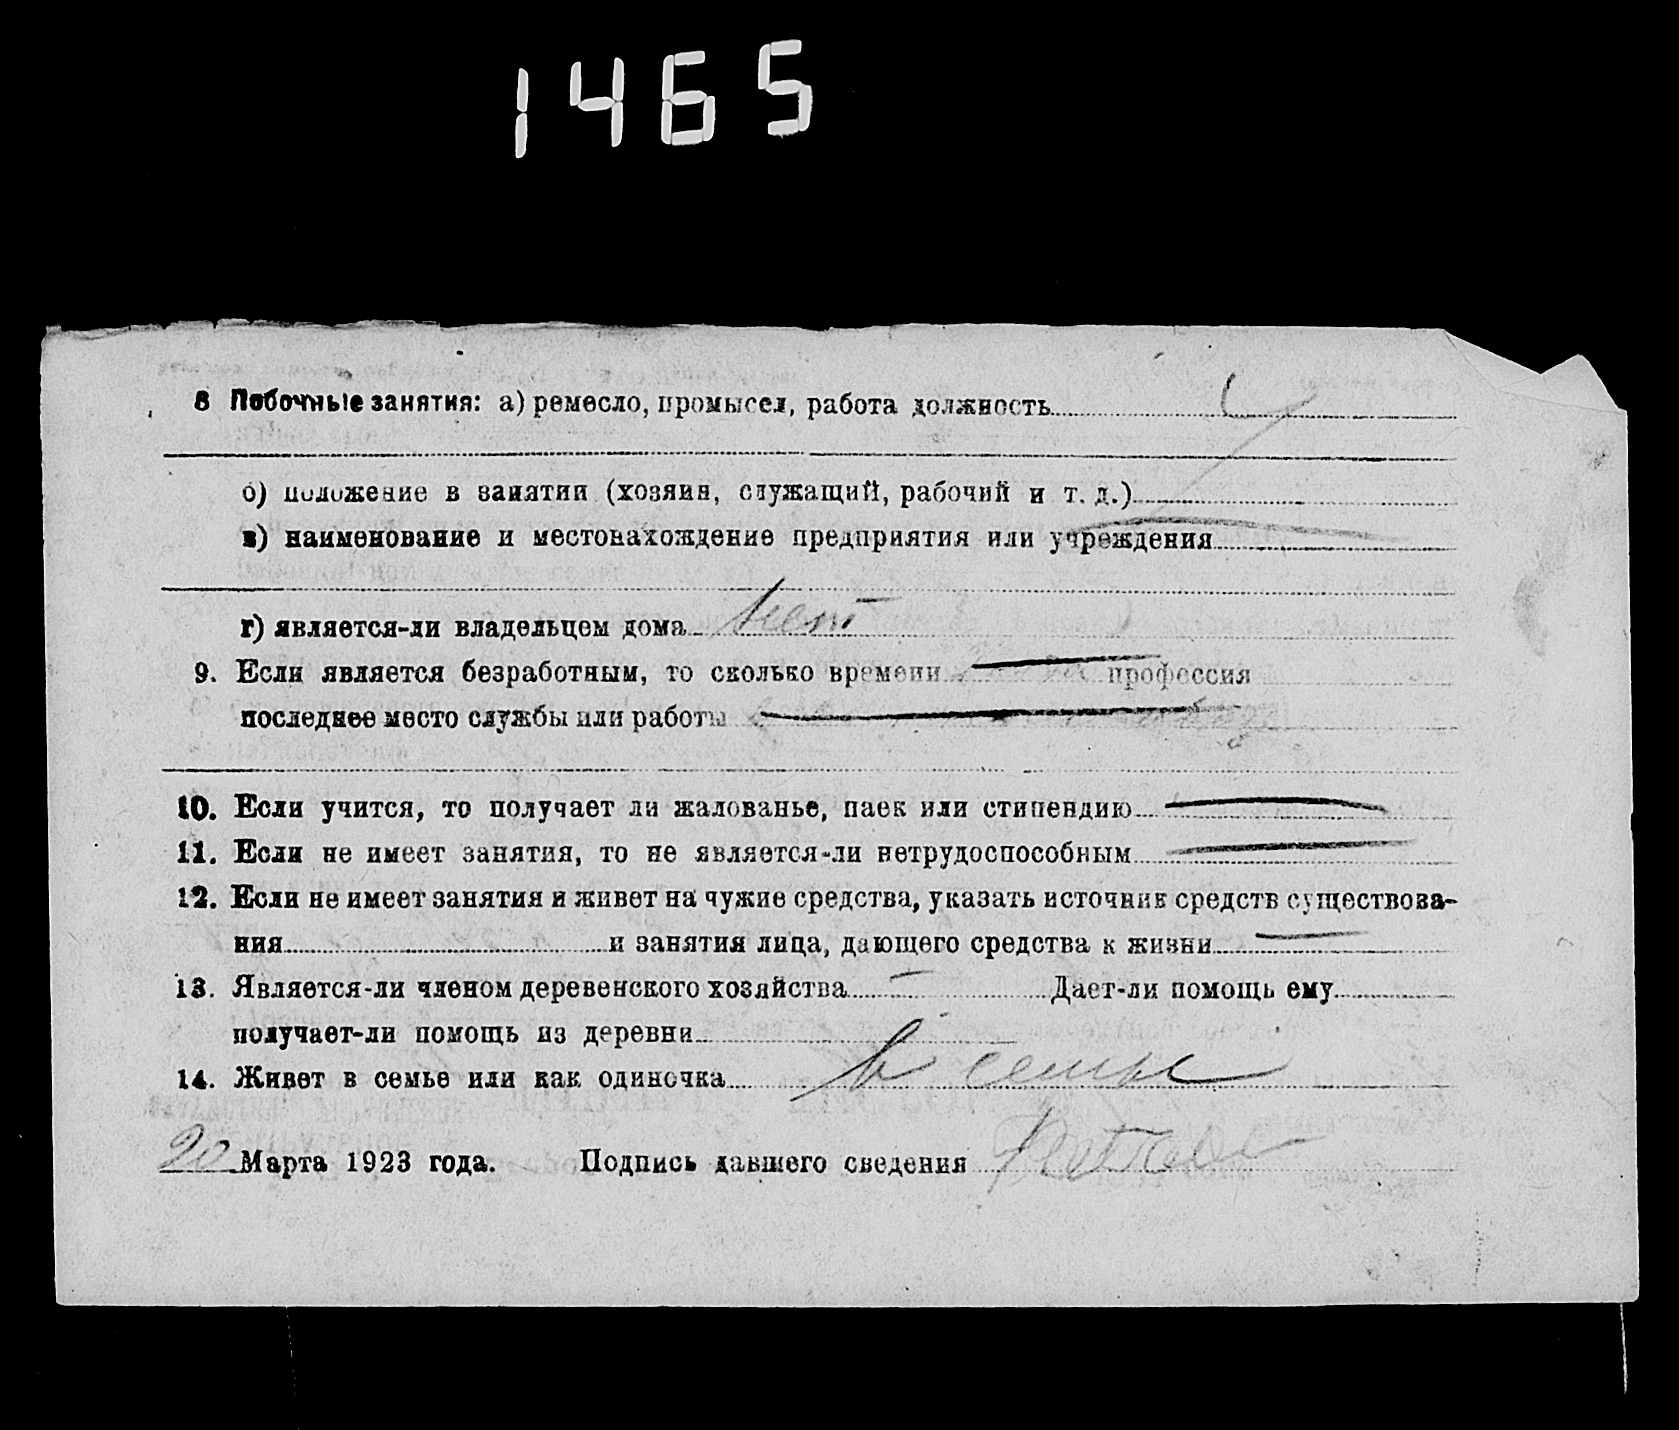 1465
8 Побочные занятия: а) ремесло, промысел, работа должность
б) положение в занятии (хозяин, служащий, рабочий и т. д.)
в) наименование и местонахождение предприятия или учреждения
г) является-ли владельцем дома нет
9. Если является безработным, то сколько времени — профессия
последнее место службы или работы —
10. Если учится, то получает ли жалованье, паек или стипендию —
11. Если не имеет занятия, то не является-ли нетрудоспособным —
12. Если не имеет занятия и живет на чужие средства, указать источник средств существова-
ния и занятия лица, дающего средства к жизни —
13. Является-ли членом деревенского хозяйства — Дает-ли помощь ему
получает-ли помощь из деревни
14. Живет в семье или как одиночка в семье
20 Марта 1923 года. Подпись давшего сведения